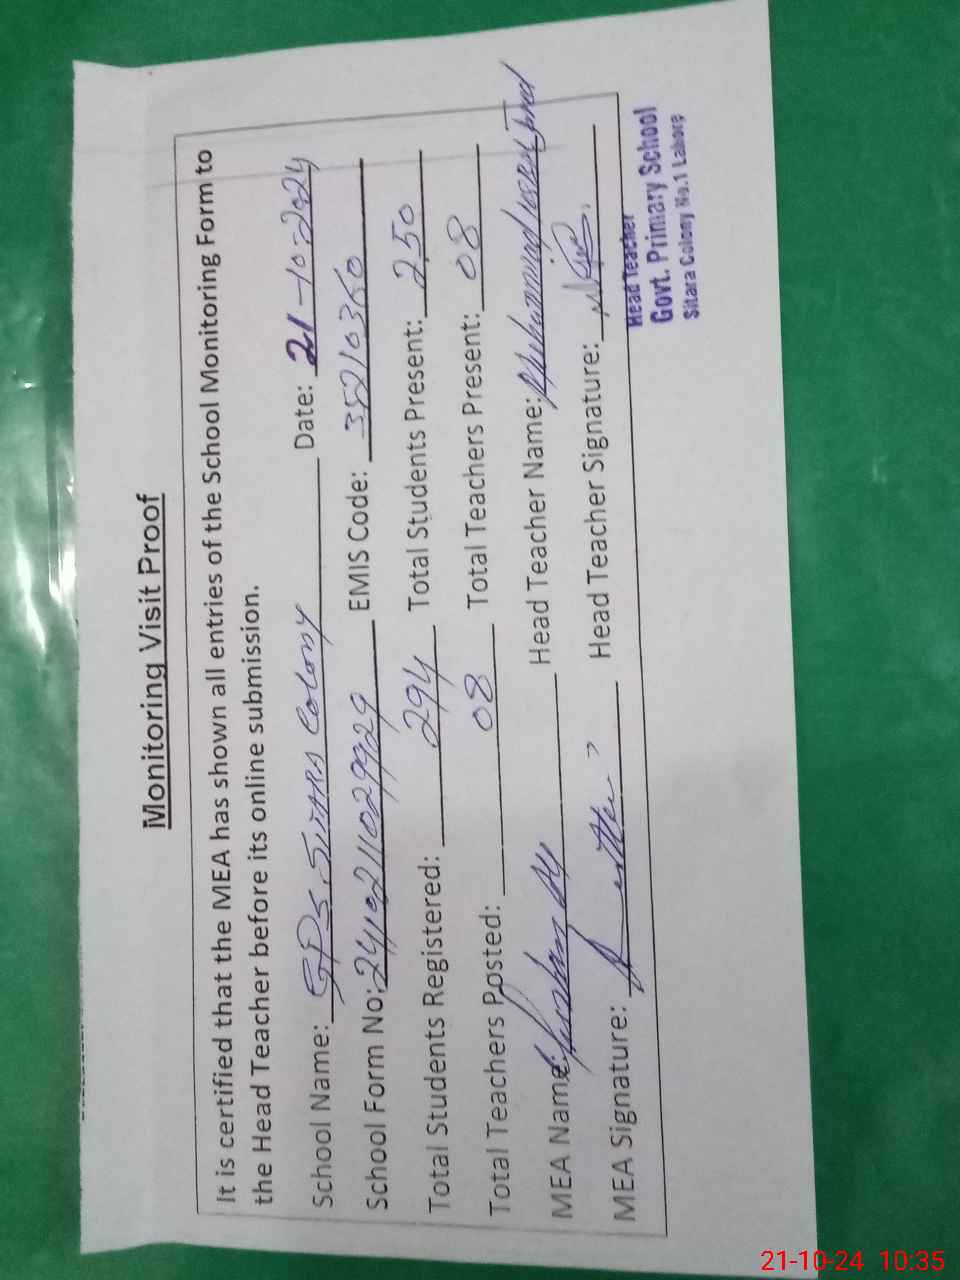 Monitoring Visit Proof
It is certified that the MEA has shown all entries of the School Monitoring Form to
the Head Teacher before its online submission.
School Name: GPS, SITARA Colony Date: 21-10-2024
School Form No: 24102110299929 EMIS Code: 35210360
Total Students Registered: 294 Total Students Present: 250
Total Teachers Posted: 08 Total Teachers Present: 08
MEA Name: Head Teacher Name: Muhammad
MEA Signature: Head Teacher Signature:
Head Teacher
Govt. Primary School
Sitara Colony No.1 Lahore
21-10-24 10:35